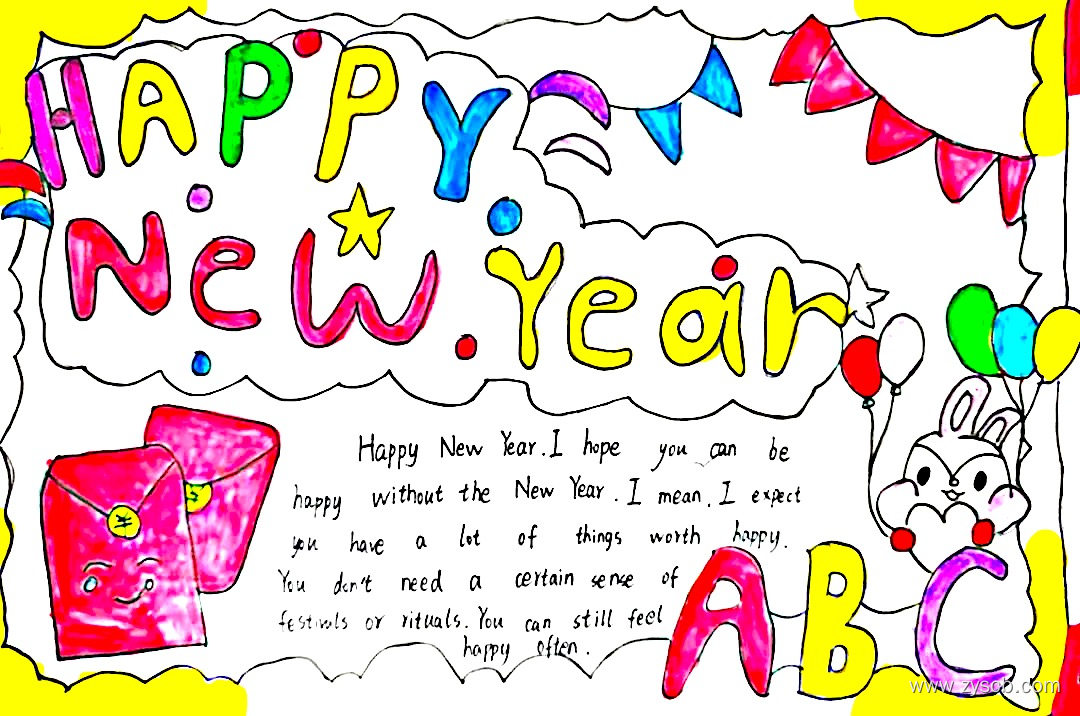 HAPPY
New Year
Happy New Year. I hope you can be
happy without the New Year. I mean. I expect
you have a lot of things worth happy.
You don't need a certain sense of
festivals or rituals. You can still feel
happy often.
ABC
www.zyscb.com